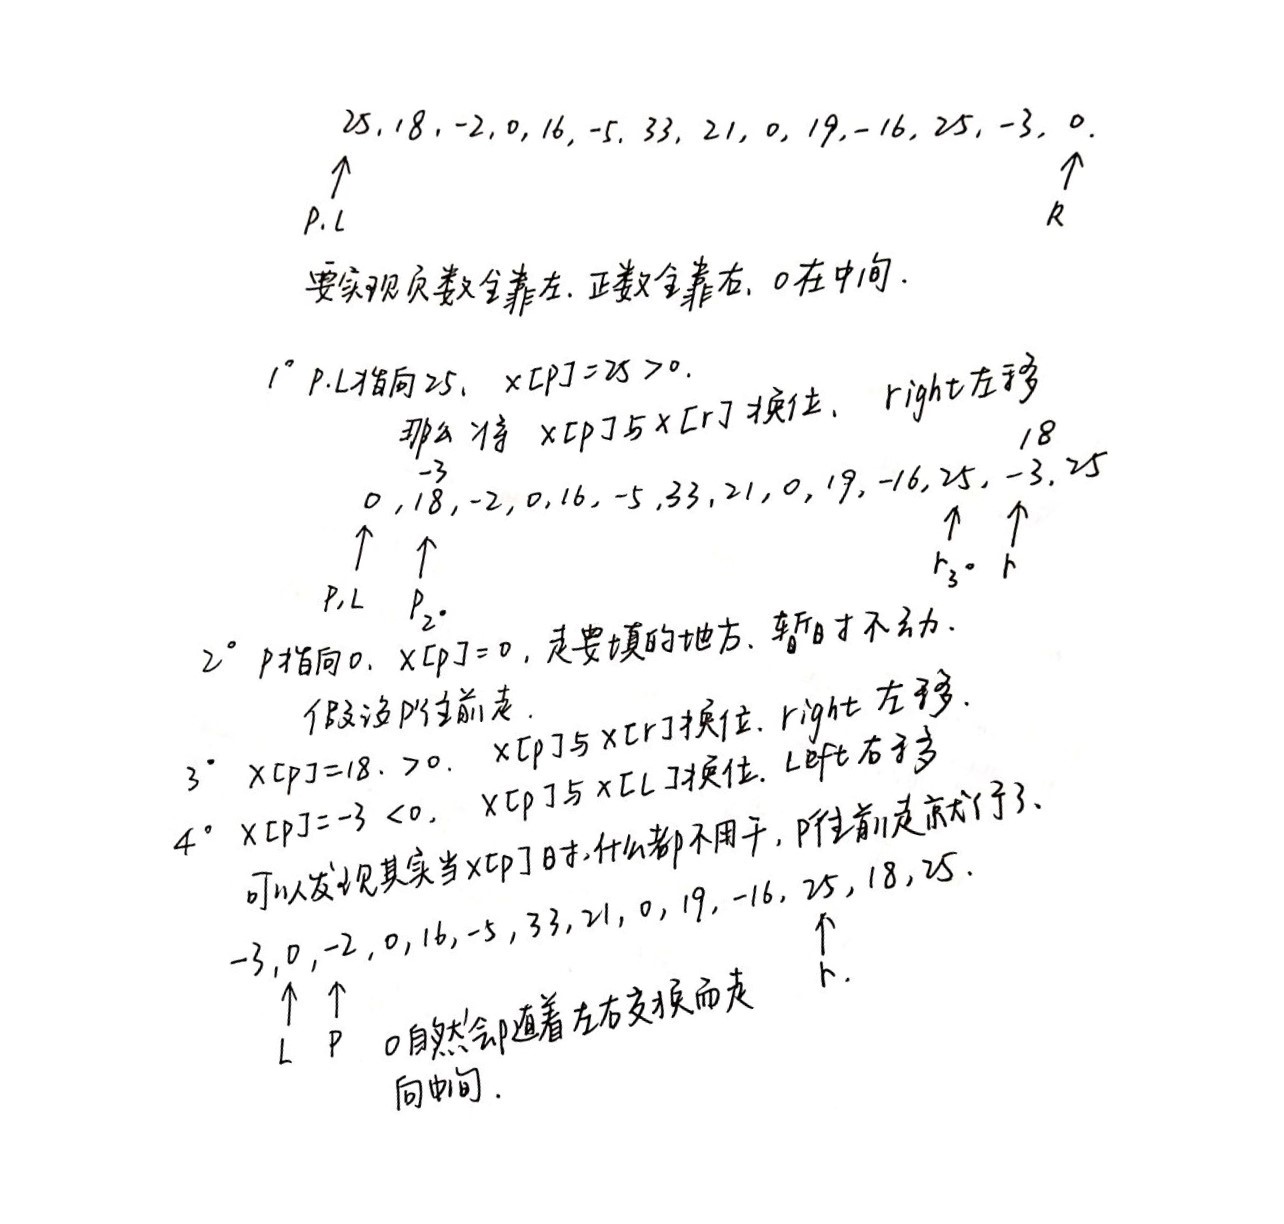 25, 18, -2, 0, 16, -5, 33, 21, 0, 19, -16, 25, -3, 0.
P.L R
要实现负数全靠左、正数全靠右、0在中间.
1° P.L指向25、 x[p]=25>0.
那么将 x[p]与x[r]换位、 right左移
-3 18
0, 18, -2, 0, 16, -5, 33, 21, 0, 19, -16, 25, -3, 25
P,L P2° r3° r
2° P指向0. x[p]=0, 是要填的地方、暂时不动.
假设P往前走.
3° x[p]=18. >0. x[p]与x[r]换位. right 左移.
4° x[p]=-3 <0, x[p]与x[L]换位. Left右移
可以发现其实当x[p]时,什么都不用干,P往前走就行了、
-3, 0, -2, 0, 16, -5, 33, 21, 0, 19, -16, 25, 18, 25.
L P r.
0自然会随着左右交换而走
向中间.